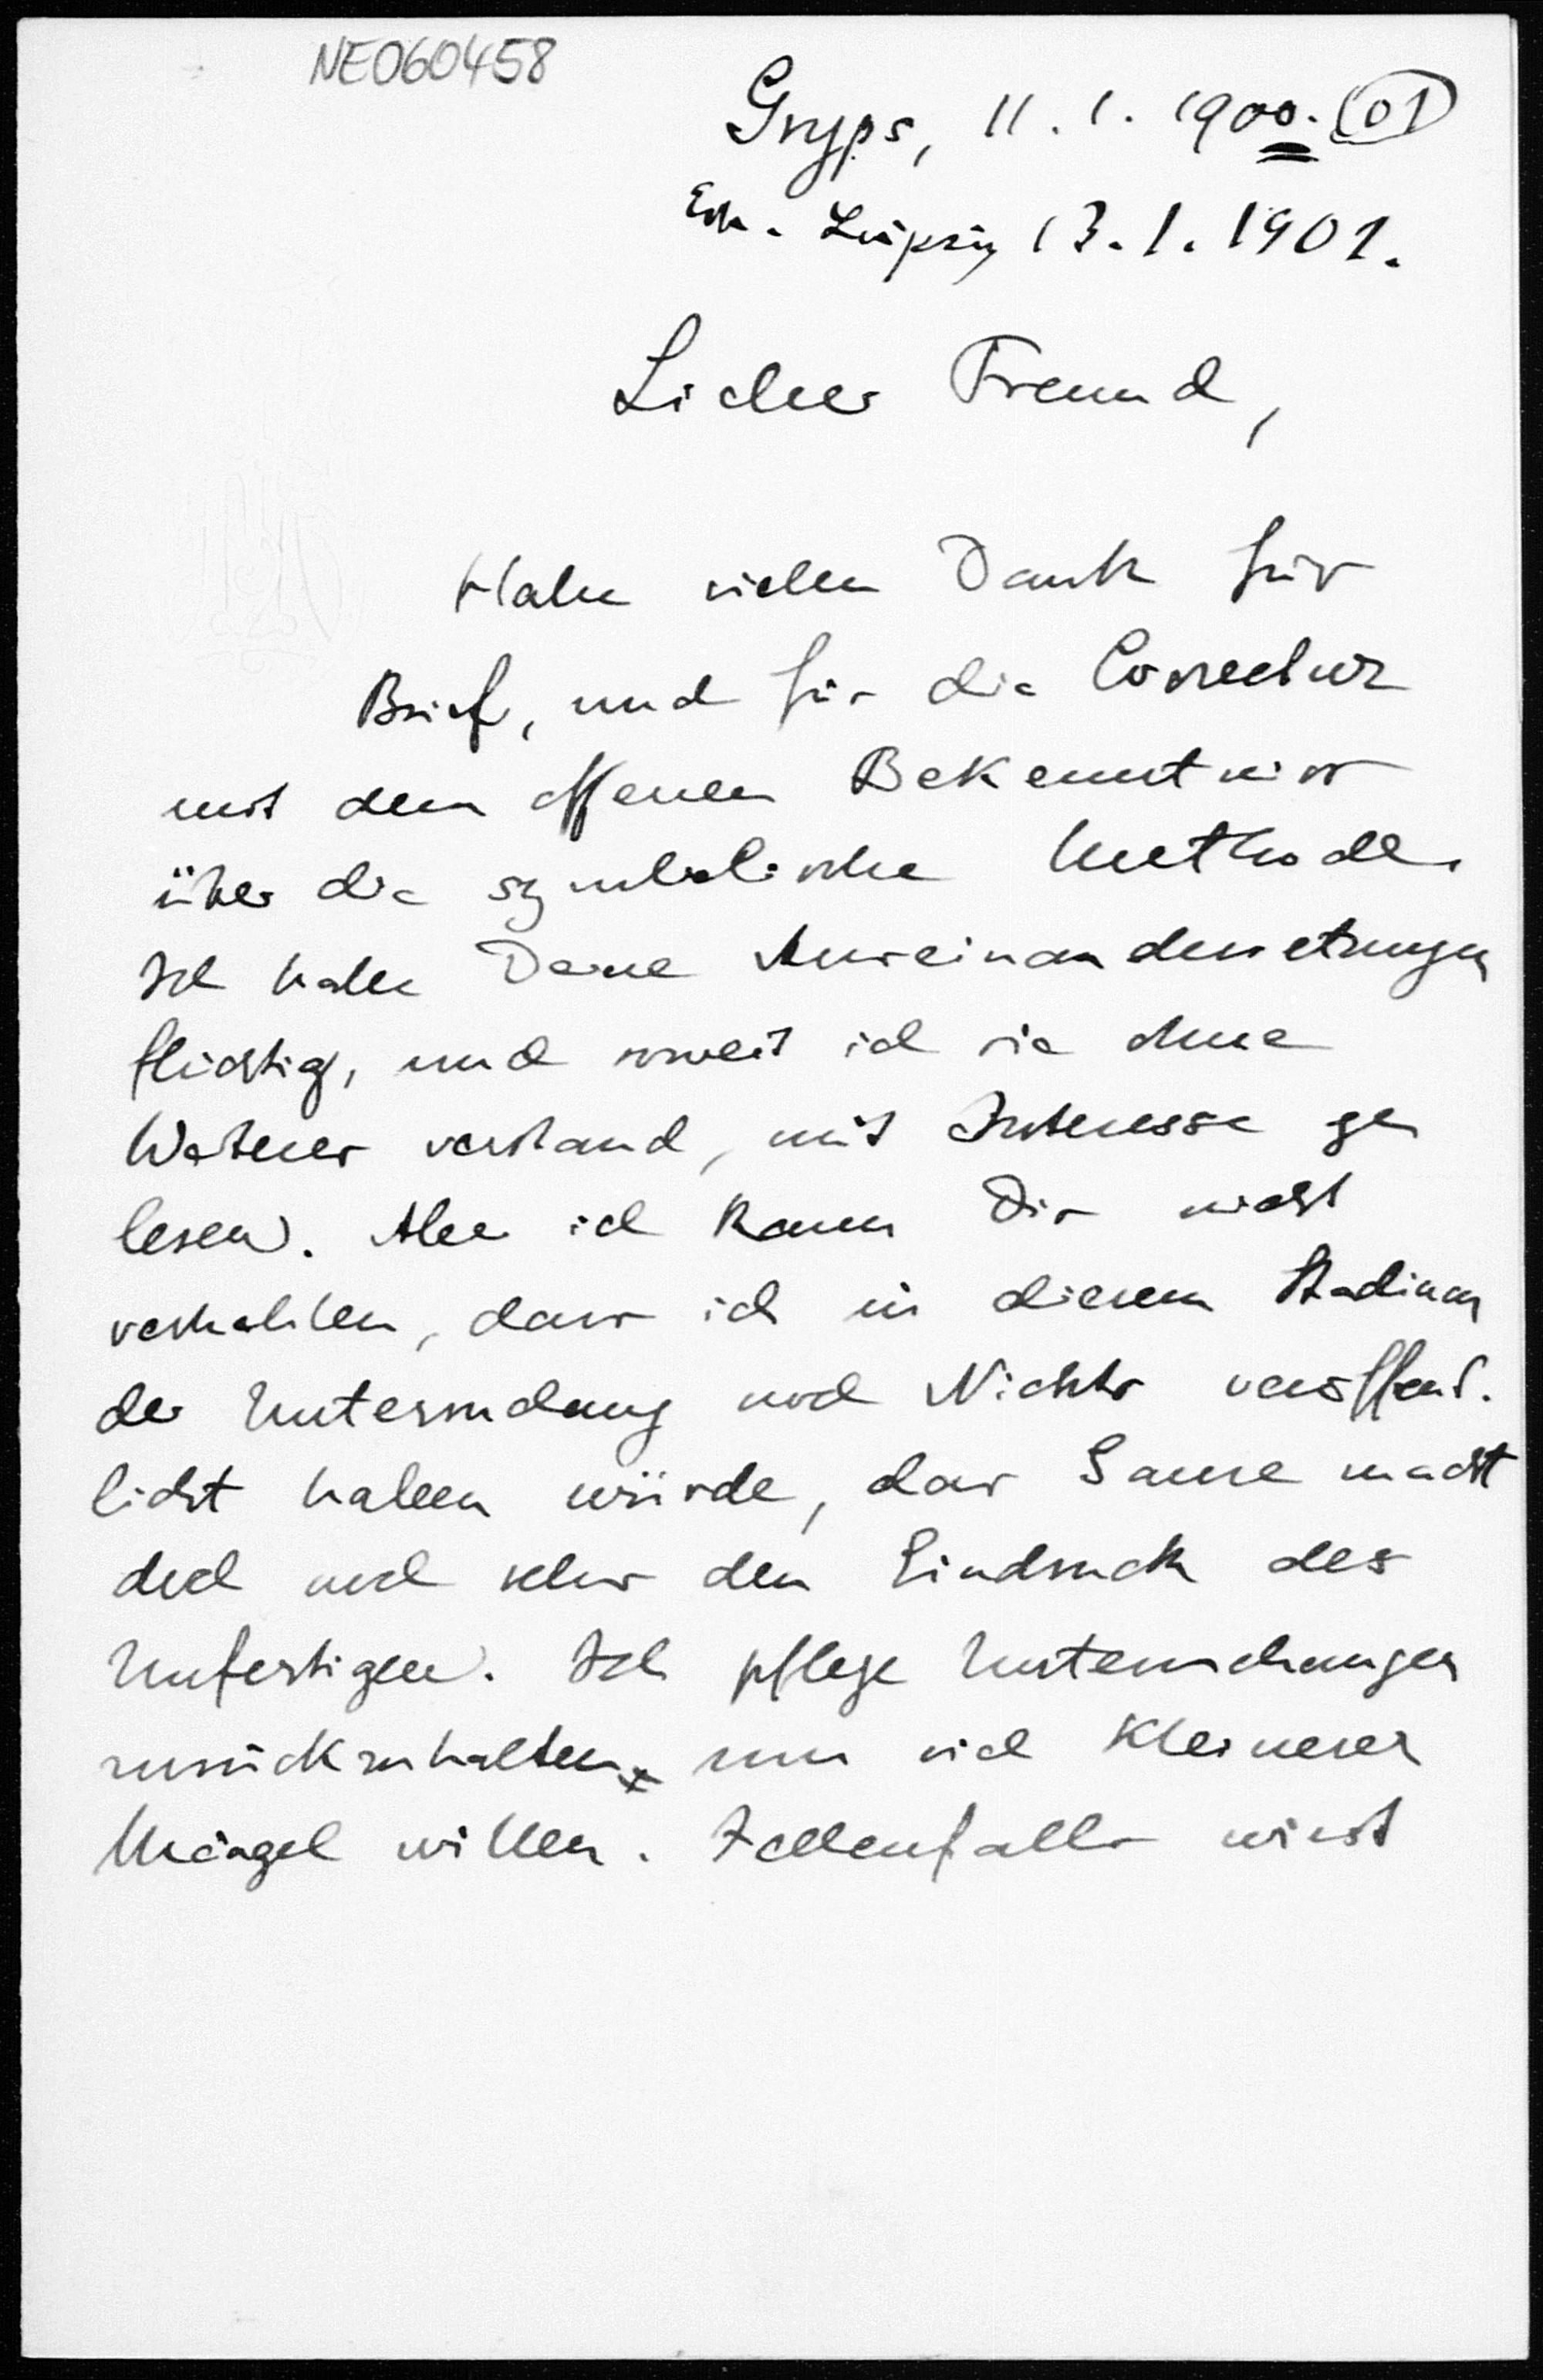 NE060458
Gryps, 11. 1. 1900. (01)
Erh. Leipzig 13. 1. 1901.
Lieber Freund,
Habe vielen Dank für
Brief, und für die Correctur
mit dem offenen Bekenntniss
über die symbolische Methode.
Ich habe Deine Auseinandersetzungen
flüchtig, und soweit ich sie ohne
Weiteres verstand, mit Interesse ge
lesen. Aber ich kann Dir nicht
verhehlen, dass ich in diesem Stadium
der Untersuchung noch Nichts veröffent-
licht haben würde, das Ganze macht
doch noch sehr den Eindruck des
Unfertigen. Ich pflege Untersuchungen
zurückzuhalten um viel kleinerer
Mängel willen. Jedenfalls wirst